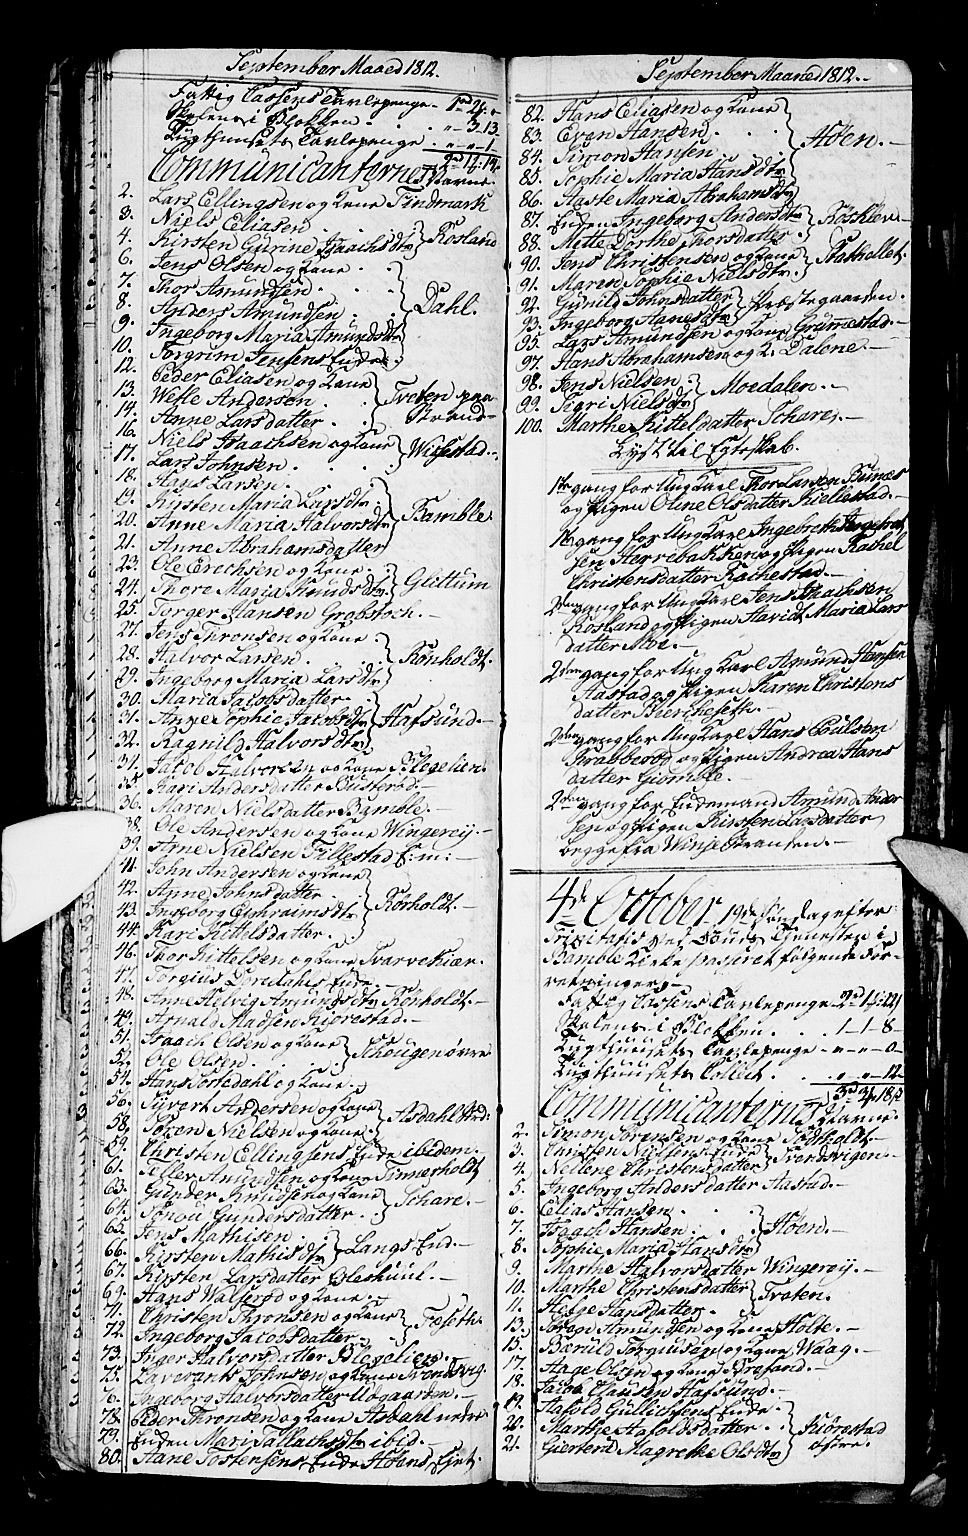 September Maaed 1812.
Fattig Cassens Tavlepenge - 1 rd 4 : -
Skolens i Blokken . . . " - 3 - 13 -
Tugthuusets Tavlepenge . " - " - 1 -
Communicanternes Navne
2. Lars Ellingsen og Kone Findmark
3. Niels Eliasen .
4. Kirsten Gurine Isaachsdtr } Rosland
6. Jens Olsen og Kone .
7. Thor Amundsen .
8. Anders Amundsen . } Dahl.
9. Ingeborg Maria Amundsdtr
10. Torgrim Jensens Enke
12. Peder Eliasen og Kone
13. Wefle Andersen . } Tveten paa
14. Anne Larsdatter . Strand -
16. Niels Isaachsen og Kone
17. Lars Johnsen . } Wissestad -
18. Hans Larsen .
19. Kirsten Maria Larsdtr
20. Anne Maria Halvorsdtr } Bamble
21. Anne Abrahamsdatter
23. Ole Erechsen og Kone .
24. Thore Maria Knudsdtr } Glittum
25. Torger Hansen Grobstoch .
27. Jens Thronsen og Kone .
28. Halvor Larsen . } Rönholdt .
29. Ingeborg Maria Larsdtr
30. Maria Jacobsdatter .
31. Anne Sophie Jacobsdtr } Hafsund -
32. Ragnild Halvorsdtr
34. Jacob Halvorsen og Kone Blegelien .
35. Kari Andersdatter Busterød -
36. Maren Nielsdatter Bamble -
38. Ole Andersen og Kone Wingereÿ -
39. Arne Nielsen Tillestad E: m: -
41. John Andersen og Kone
42. Anne Johnsdatter .
43. Ingeborg Ephraimsdtr } Rörholdt . -
44. Kari Kittelsdatter .
46. Thor Kittelsen og Kone Tvarvekiær. -
47. Torgius Dordahls Enke . -
48. Anne Helvig Amundsdtr Rönholdt -
49. Arnald Madsen Kjörestad . -
51. Isaach Olsen og Kone
52. Ole Olsen . } Skougen øvre
54. Hans Tortdahl og Kone .
56. Syvert Andersen og Kone } Aasdahl Ned:
58. Soren Nielsen og Kone .
59. Christen Ellingsens Enke ibidem. -
61. Teller Amundsen og Kone Tinnerholt
63. Gunder Knudsen og Kone
64. Tonou Gundersdatter . } Schare. -
65. Jens Mathisen .
66. Kirsten Mathisdtr } Langs End. -
67. Kirsten Larsdatter Oleskuul . -
69. Hans Walserød og Kone . -
71. Christen Thronsen og Kone } Foseth
72. Ingeborg Jacobsdatter .
73. Inger Halvorsdatter Blegelien -
75. Zaverants Johnsen og Kone Trondsvig
76. Ingeborg Halvorsdatter Udgaarden. -
78. Peder Thronsen og Kone Aasdahl nedre
79. Enken Mari Tallachsdtr ibid. -
80. Hane Tostensens Enke Hoens Ejet . -
September Maaned 1812.
82. Hans Eliasen og Kone
83. Even Hansen .
84. Simon Hansen . } Höen. -
85. Sophie Maria Hansdtr
86. Aaste Maria Abrahamsdtr
87. Enken Ingeborg Andersdtr
88. Mette Dorthe Thorsdatter } Röschlev -
90. Jens Christensen og Kone
91. Maren Sophie Nielsdtr } Stathellet -
92. Gunild Johnsdatter
93. Ingeborg Hansdtr } Præstegaarden. -
95. Lars Amundsen og Kone Grümestad. -
97. Hans Abrahamsen og K: Dalene. -
98. Jens Nielsen .
99. Sigri Nielsdtr } Moedalen. -
100. Marthe Kitteldatter Schare. -
Lyst til Egteskab.
1ste gang for Ung Karl Thor Larsen Bunæs
og Pigen Olene Olsdatter Kiellestad. -
1ste gang for Ung Karl Ingebreth Ingebreth
sen Herrebakken og Pigen Rachel
Christensdatter Rachestad. -
2den gang for Ung Karl Jens Isachsen
Rosland og Pigen Aavid Maria Lars
datter Moe. -
2den gang for Ung Karl Amund Hansen
Aastad og Pigen Karen Christens
datter Kiercheseth. -
2den gang for Ung Karl Hans Poulsen
Krabberød og Pigen Andrea Hans
datter Gjømle. -
2den gang for Enkemand Amund Ander
sen og Pigen Kirsten Larsdatter
begge fra Winje Stranden. -
4de October, 19de Söndag efter
Trinitatis ved Guds Tjenesten i
Bamble Kirke passeret følgende For-
retninger: -
Fattig Cassens Tavlepenge - 2 rd 1 : 22
Skolens i Blokken . . . 1 - 1 - 8 -
Tugthuusets Tavlepenge - " - " - 0 -
Tugthuusets Collect . . . " - " - 12 -
3 rd 3 : 18
Communicanternes Navne
2. Simon Sörensen og Kone Todtholdt. -
3. Christen Nielsens Enke
4. Nellene Christensdatter } Trondsvigen. -
5. Ingeborg Andersdatter Aastad -
6. Elias Hansen .
7. Isaach Hansen . } Höen. -
8. Sophie Maria Hansdtr
9. Marthe Halvorsdatter Wingereÿ. -
10. Marthe Christensdatter
11. Helge Hansdatter . } Tveten.
13. Soren Amundsen og Kone Holte. -
15. Bærüld Torgiusen og Kone Waag. -
17. Hage Olsen og Kone Brosand. -
18. Jacob Clausen Hafsund. -
19. Hafold Gullichsens Enke .
20. Marthe Hafoldsdatter . } Kiörestad
21. Gierterü Magrethe Olsdtr öfvre. -